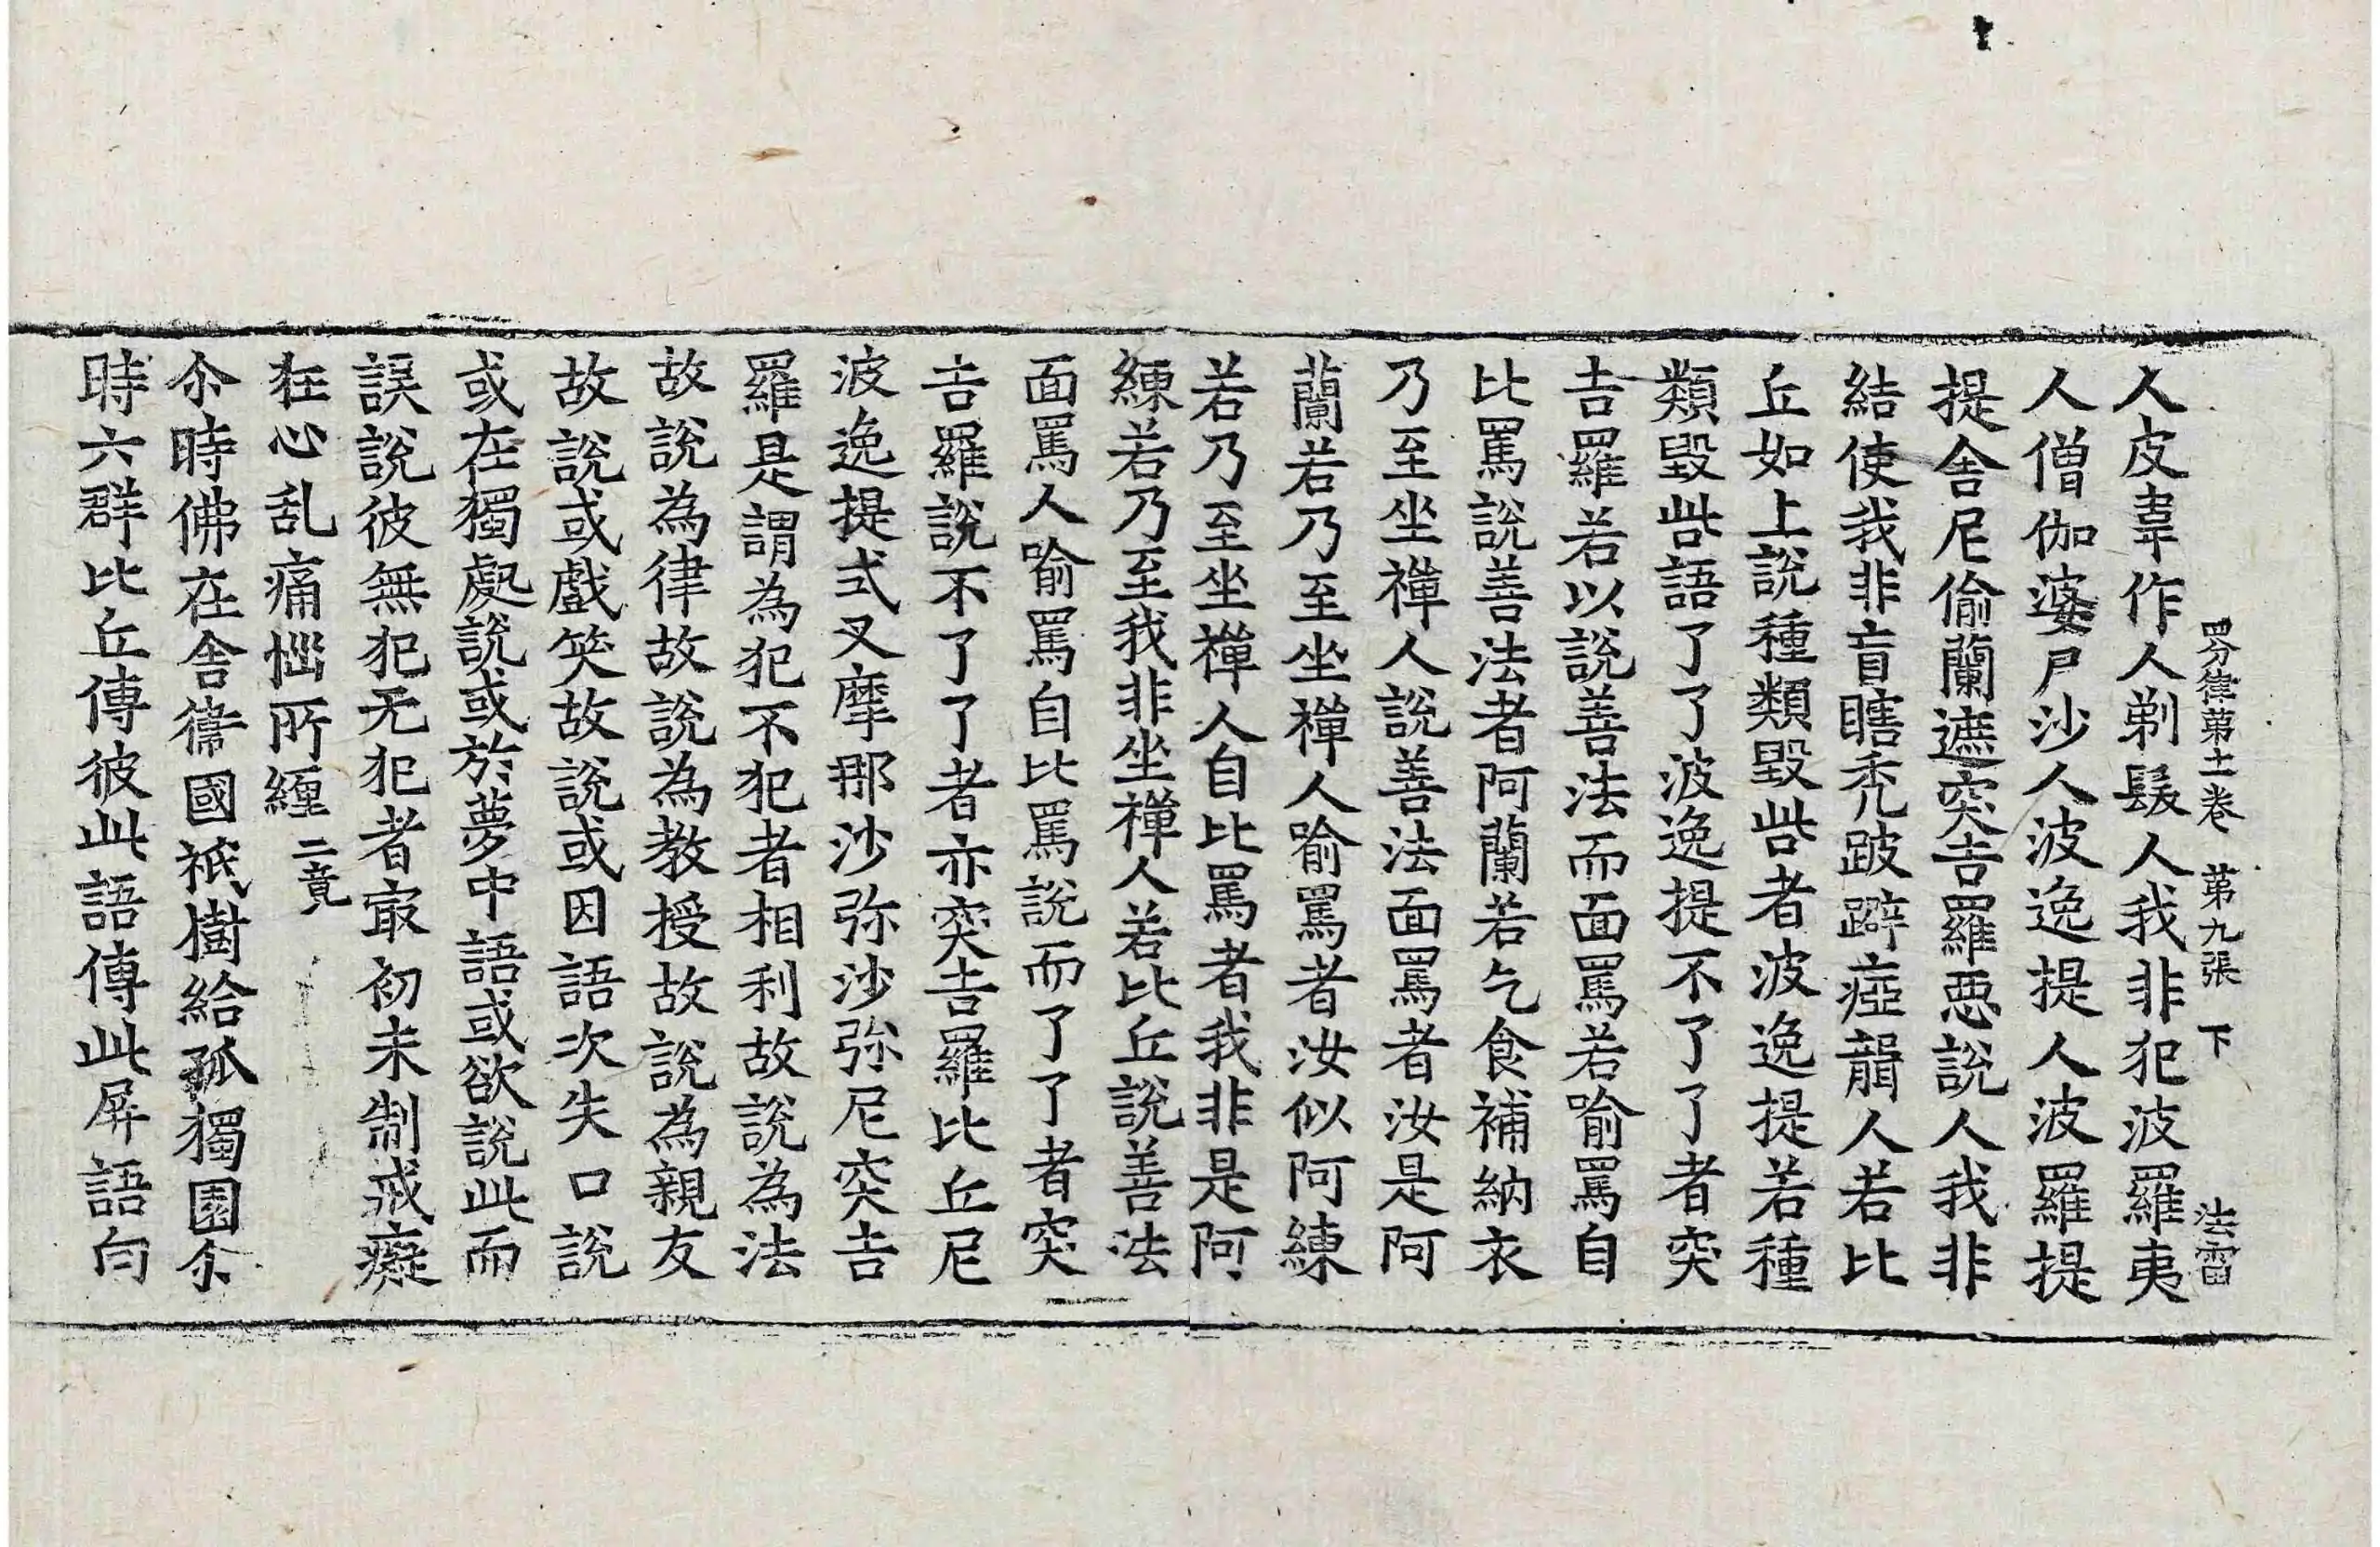 四分律苐十一卷 苐九張 下 法雷
人皮韋作人剃髮人我非犯波羅夷
人僧伽婆尸沙人波逸提人波羅提
提舍尼偷蘭遮突吉羅惡說人我非
結使我非盲瞎禿跛躃瘂聾人若比
丘如上說種類毀呰者波逸提若種
類毀呰語了了波逸提不了了者突
吉羅若以說善法而面罵若喻罵自
比罵說善法者阿蘭若乞食補納衣
乃至坐禪人說善法面罵者汝是阿
蘭若乃至坐禪人喻罵者汝似阿練
若乃至坐禪人自比罵者我非是阿
練若乃至我非坐禪人若比丘說善法
面罵人喻罵自比罵說而了了者突
吉羅說不了了者亦突吉羅比丘尼
波逸提式叉摩那沙弥沙弥尼突吉
羅是謂為犯不犯者相利故說為法
故說為律故說為教授故說為親友
故說或戲笑故說或因語次失口說
或在獨處說或於夢中語或欲說此而
誤說彼無犯无犯者冣初未制戒癡
狂心乱痛惱所纏 二竟
尒時佛在舍衛國祇樹給孤獨園尒
時六群比丘傳彼此語傳此屏語向